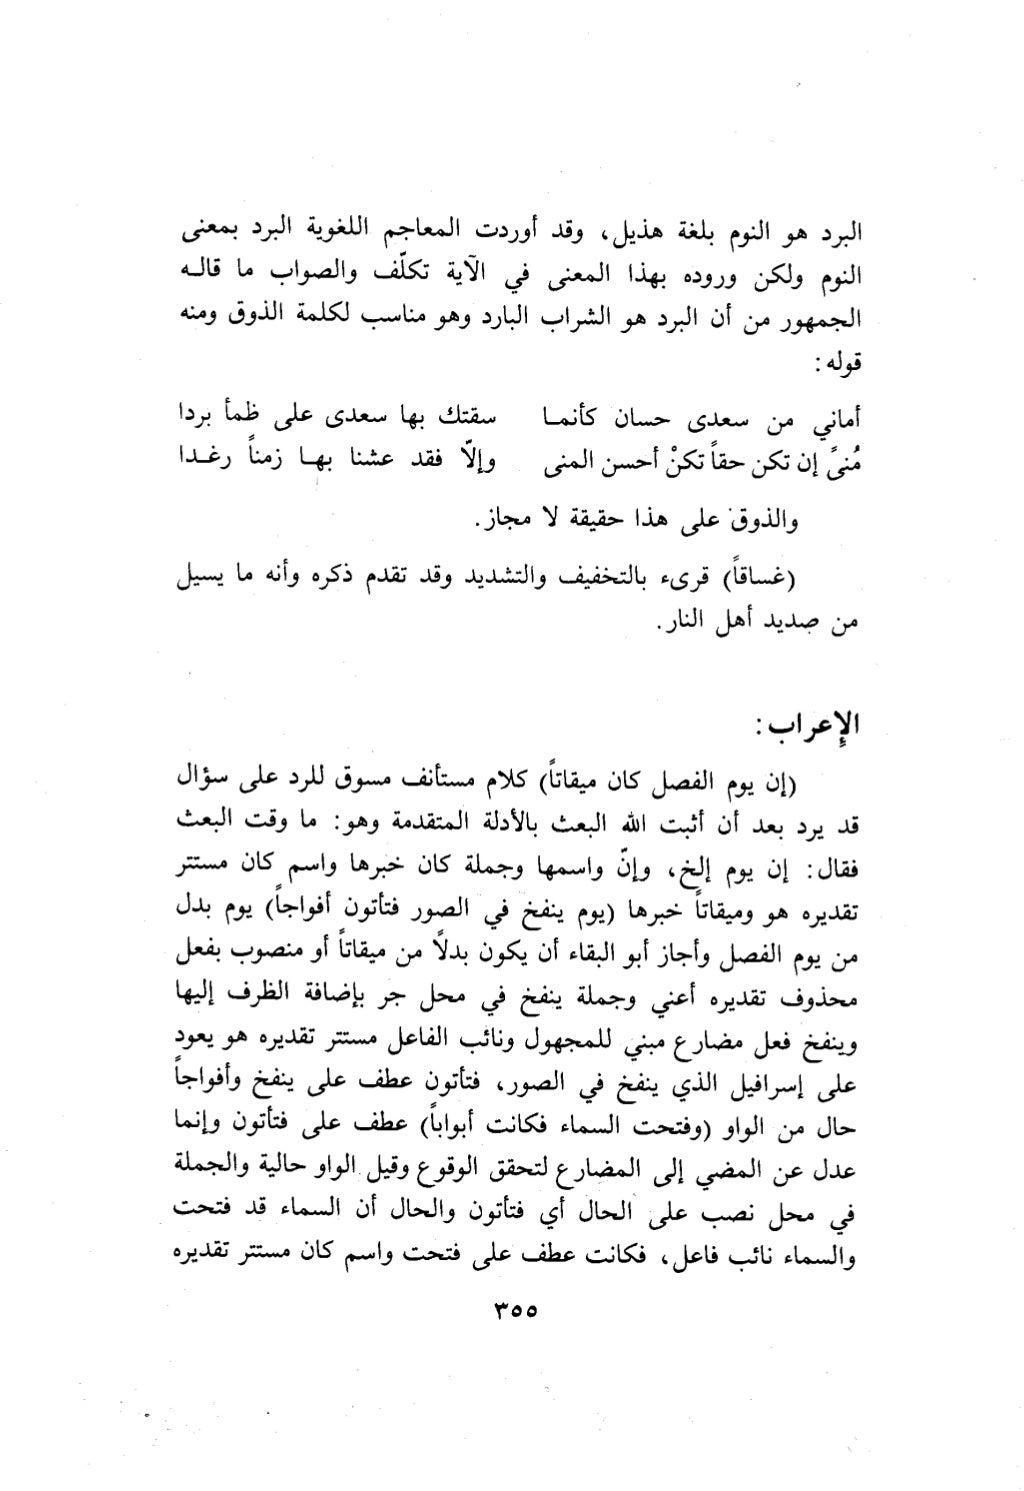 البرد هو النوم بلغة هذيل، وقد أوردت المعاجم اللغوية البرد بمعنى
النوم ولكن وروده بهذا المعنى في الآية تكلّف والصواب ما قاله
الجمهور من أن البرد هو الشراب البارد وهو مناسب لكلمة الذوق ومنه
قوله:
أماني من سعدى حسان كأنما سقتك بها سعدى على ظمأ بردا
مُنىً إن تكن حقاً تكنْ أحسن المنى وإلاّ فقد عشنا بها زمناً رغدا
والذوق على هذا حقيقة لا مجاز.
(غساقاً) قرىء بالتخفيف والتشديد وقد تقدم ذكره وأنه ما يسيل
من صديد أهل النار.
الإعراب:
(إن يوم الفصل كان ميقاتاً) كلام مستأنف مسوق للرد على سؤال
قد يرد بعد أن أثبت الله البعث بالأدلة المتقدمة وهو: ما وقت البعث
فقال: إن يوم إلخ، وإنّ واسمها وجملة كان خبرها واسم كان مستتر
تقديره هو وميقاتاً خبرها (يوم ينفخ في الصور فتأتون أفواجاً) يوم بدل
من يوم الفصل وأجاز أبو البقاء أن يكون بدلاً من ميقاتاً أو منصوب بفعل
محذوف تقديره أعني وجملة ينفخ في محل جر بإضافة الظرف إليها
وينفخ فعل مضارع مبني للمجهول ونائب الفاعل مستتر تقديره هو يعود
على إسرافيل الذي ينفخ في الصور، فتأتون عطف على ينفخ وأفواجاً
حال من الواو (وفتحت السماء فكانت أبواباً) عطف على فتأتون وإنما
عدل عن المضي إلى المضارع لتحقق الوقوع وقيل الواو حالية والجملة
في محل نصب على الحال أي فتأتون والحال أن السماء قد فتحت
والسماء نائب فاعل، فكانت عطف على فتحت واسم كان مستتر تقديره
٣٥٥